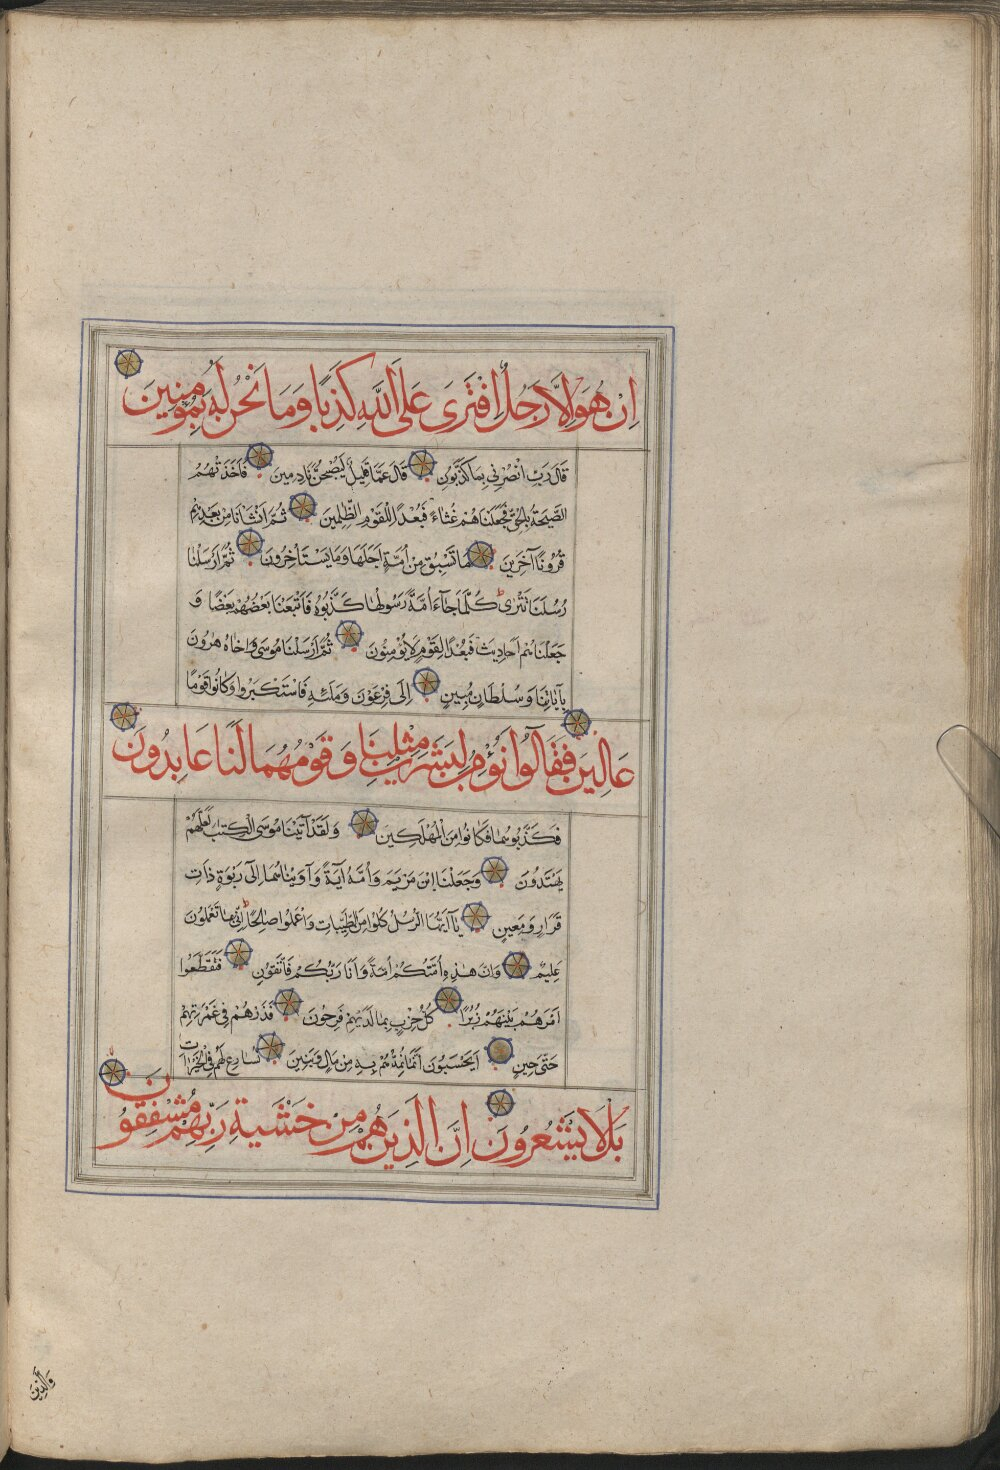 اِنْ هُوَ اِلَّا رَجُلٌ افْتَرَى عَلَى اللَّهِ كَذِبًا وَمَا نَحْنُ لَهُ بِمُؤْمِنِينَ
قَالَ رَبِّ انْصُرْنِي بِمَا كَذَّبُونِ قَالَ عَمَّا قَلِيلٍ لَيُصْبِحُنَّ نَادِمِينَ فَاَخَذَتْهُمُ
الصَّيْحَةُ بِالْحَقِّ فَجَعَلْنَاهُمْ غُثَاءً فَبُعْدًا لِلْقَوْمِ الظّٰلِمِينَ ثُمَّ اَنْشَاْنَا مِنْ بَعْدِهِمْ
قُرُونًا آخَرِينَ مَا تَسْبِقُ مِنْ اُمَّةٍ اَجَلَهَا وَمَا يَسْتَأْخِرُونَ ثُمَّ اَرْسَلْنَا
رُسُلَنَا تَتْرٰى كُلَّمَا جَآءَ اُمَّةً رَسُولُهَا كَذَّبُوهُ فَاَتْبَعْنَا بَعْضَهُمْ بَعْضًا وَ
جَعَلْنَاهُمْ اَحَادِيثَ فَبُعْدًا لِقَوْمٍ لَا يُؤْمِنُونَ ثُمَّ اَرْسَلْنَا مُوسَى وَاَخَاهُ هٰرُونَ
بِآيَاتِنَا وَسُلْطَانٍ مُبِينٍ اِلَى فِرْعَوْنَ وَمَلَئِهِ فَاسْتَكْبَرُوا وَكَانُوا قَوْمًا
عَالِينَ فَقَالُوا اَنُؤْمِنُ لِبَشَرَيْنِ مِثْلِنَا وَقَوْمُهُمَا لَنَا عَابِدُونَ
فَكَذَّبُوهُمَا فَكَانُوا مِنَ الْمُهْلَكِينَ وَلَقَدْ آتَيْنَا مُوسَى الْكِتٰبَ لَعَلَّهُمْ
يَهْتَدُونَ وَجَعَلْنَا ابْنَ مَرْيَمَ وَاُمَّهُ آيَةً وَآوَيْنَاهُمَا اِلٰى رَبْوَةٍ ذَاتِ
قَرَارٍ وَمَعِينٍ يَا اَيُّهَا الرُّسُلُ كُلُوا مِنَ الطَّيِّبَاتِ وَاعْمَلُوا صَالِحًا اِنِّي بِمَا تَعْمَلُونَ
عَلِيمٌ وَاِنَّ هٰذِهِ اُمَّتُكُمْ اُمَّةً وَاَنَا رَبُّكُمْ فَاتَّقُونِ فَتَقَطَّعُوا
اَمْرَهُمْ بَيْنَهُمْ زُبُرًا كُلُّ حِزْبٍ بِمَا لَدَيْهِمْ فَرِحُونَ فَذَرْهُمْ فِي غَمْرَتِهِمْ
حَتَّى حِينٍ اَيَحْسَبُونَ اَنَّمَا نُمِدُّهُمْ بِهِ مِنْ مَالٍ وَبَنِينَ نُسَارِعُ لَهُمْ فِي الْخَيْرَاتِ
بَلْ لَا يَشْعُرُونَ اِنَّ الَّذِينَ هُمْ مِنْ خَشْيَةِ رَبِّهِمْ مُشْفِقُونَ
وَالَّذِينَ